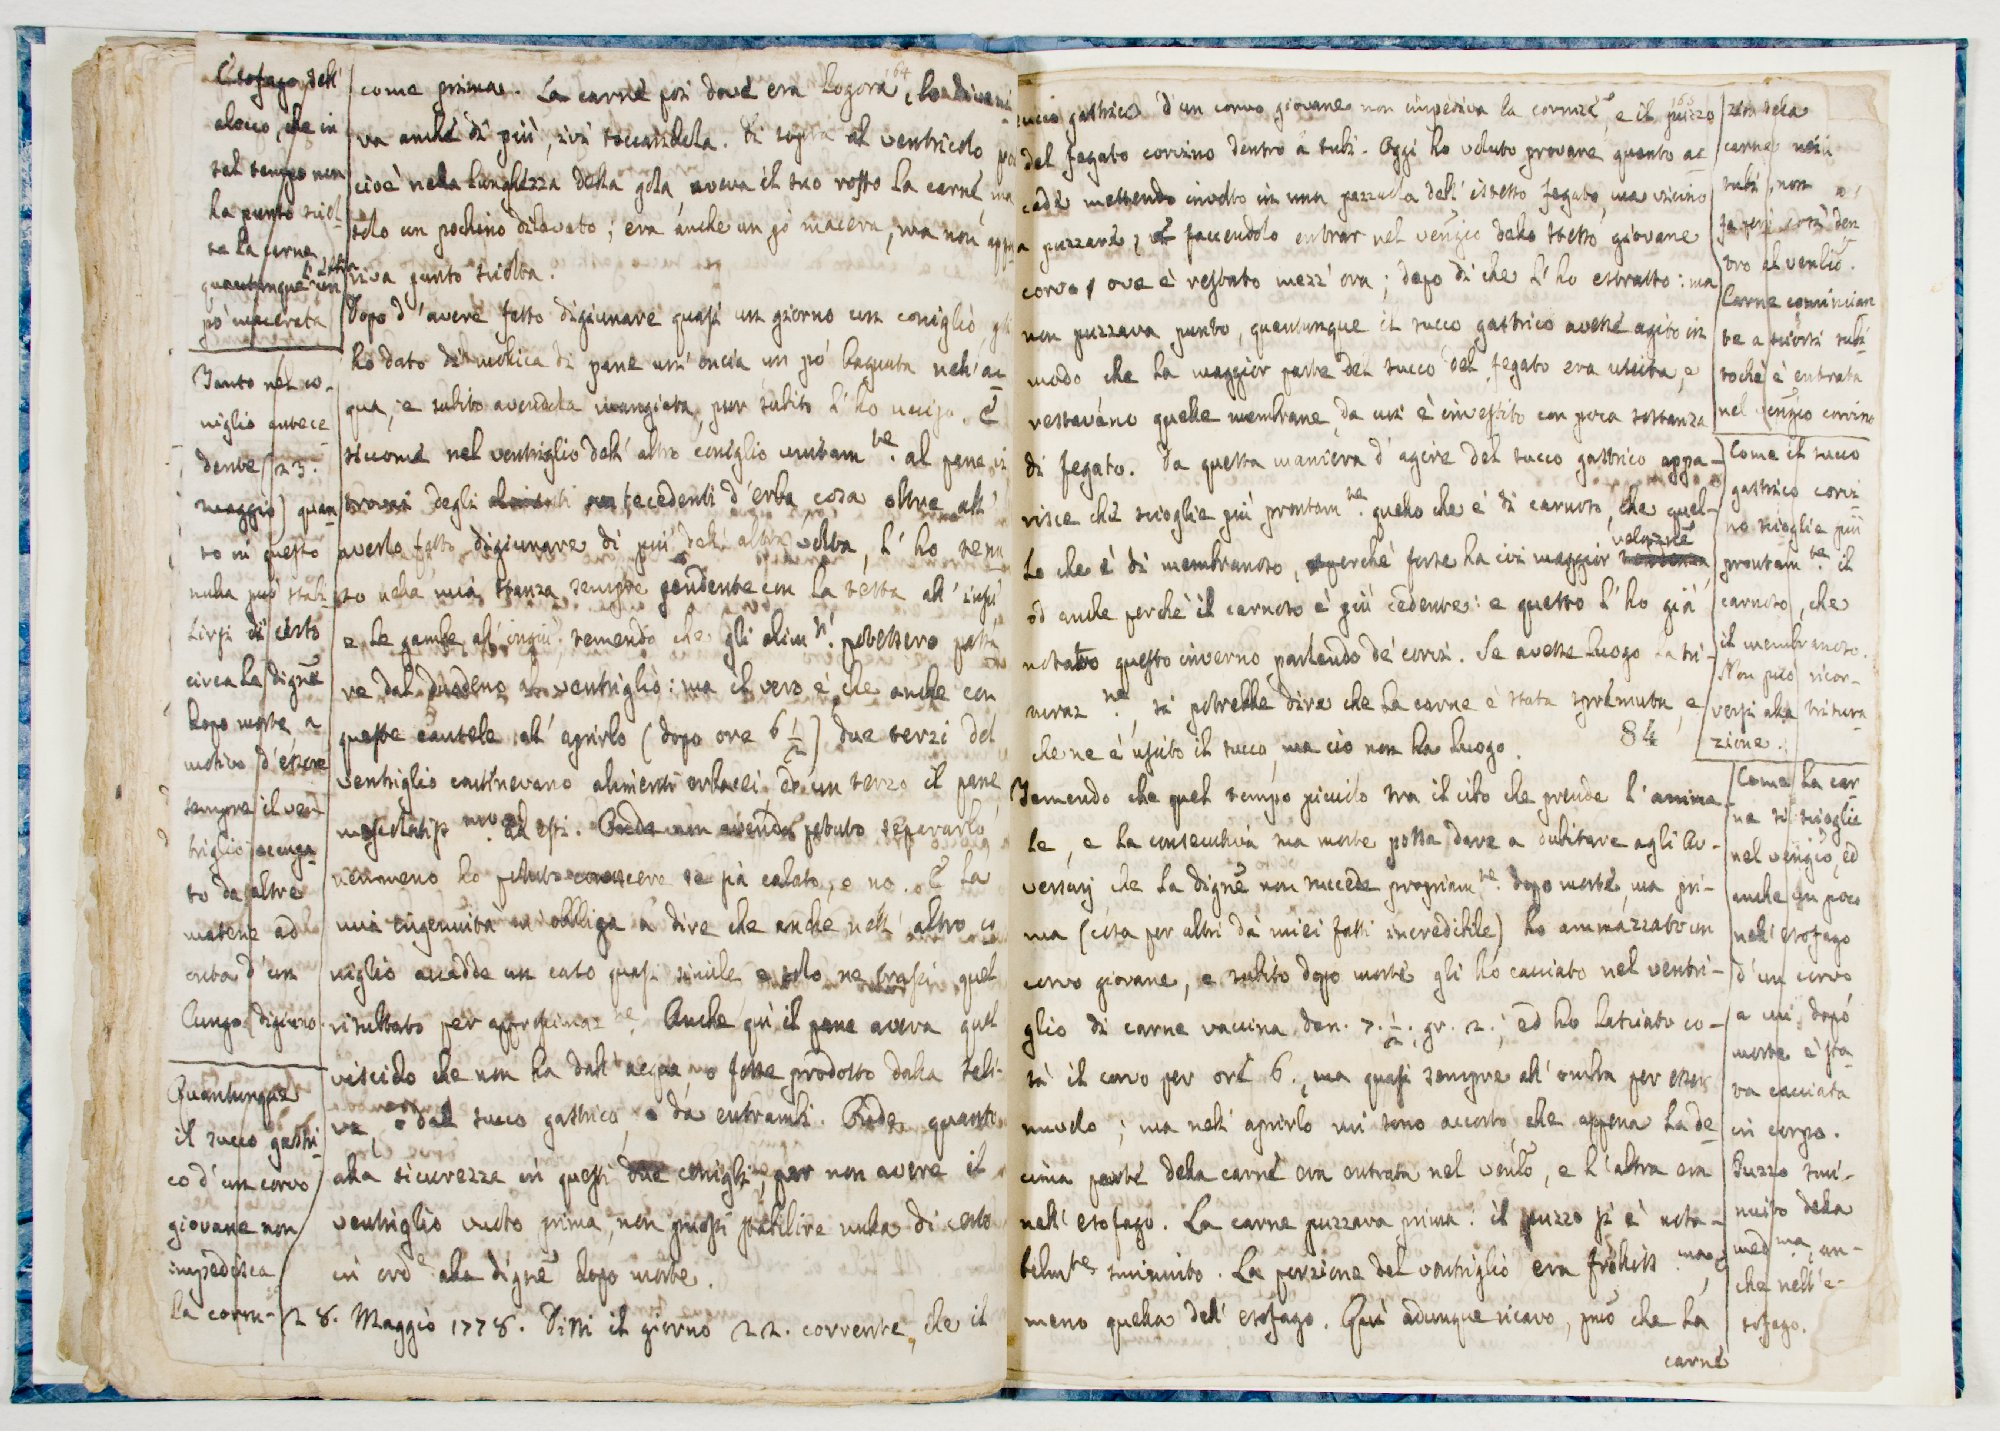 L'esofago dell'
alocco, che in
tal tempo non
ha punto sciol-
ta la carne
quantunque un
pò macerata
Tanto nel co-
niglio antece-
dente (23.
maggio) quan
to in questo
nulla può stabi
lirsi di certo
circa la digne
dopo morte a
motivo d'essere
sempre il ven
triglio occupa-
to da altre
materie ad
onta d'un
lungo digiuno.
Quantunque
il succo gastri
co d'un corvo
giovane non
impedisca
la corru-
164
come prima. La carne poi dove era logora,
va anche di più, ivi toccandola. Di sopra al ventricolo
cioè nella lunghezza della gola, aveva il suo rosso la carne, ma
solo un pochino dilavato; era anche un pò macera, ma non
riva punto sciolta.
Dopo d'avere fatto digiunare quasi un giorno un coniglio, gli
ho dato di mollica di pane un'oncia un pò bagnata nell'ac
qua, e subito avendola mangiata, pur subito l'ho ucciso. E
siccome nel ventriglio dell'altro coniglio unitam.te al pane vi
trovai degli antecedenti d'erba, cosa oltre all'
averlo fatto digiunare di più dell'altra volta, l'ho tenu
to nella mia stanza sempre pendente con la testa all'insù,
e le gambe all'ingiù, temendo che gli alim.ti potessero passa
re dal duodeno al ventriglio: ma il vero è che anche con
queste cautele all'aprirlo (dopo ore 6 1/2) due terzi del
ventriglio contenevano alimenti erbacei ed un terzo il pane
mescolatisi ad essi. Onde non avendo potuto separarlo
nemmeno ho potuto conoscere se sia calato, e no. E la
mia ingenuità mi obbliga a dire che anche nell'altro co
niglio accadde un caso quasi simile e solo ne trassi quel
risultato per approssimaz.ne Anche quì il pane aveva quel
viscido che non ha dall'acqua, o fosse prodotto dalla sali-
va, o dal succo gastrico, o da entrambi. Onde quanto
alla sicurezza in questi due conigli, per non avere il
ventriglio vuoto prima, non puossi stabilire nulla di certo
in ord.e alla digne dopo morte.
28. Maggio 1778. Dissi il giorno 22. corrente, che il
165
succo gastrico d'un corvo giovane non impediva la corruzne, e il puzzo
del fegato corvino dentro a tubi. Oggi ho voluto provare quanto ac
cade mettendo involto in una pezzuola dell'istesso fegato, ma vicino
a puzzare, facendolo entrar nel vengio dello stesso giovane
corvo, ove è restato mezz'ora; dopo di che l'ho estratto: ma
non puzzava punto, quantunque il succo gastrico avesse agito in
modo che la maggior parte del succo del fegato era uscita, e
restavano quelle membrane, da cui è investito con poca sostanza
di fegato. Da questa maniera d'agire del succo gastrico appa-
risce che scioglie più prontam.te quello che è di carnoso, che quel-
lo che è di membranoso, perchè forse ha ivi maggior
od anche perchè il carnoso è più cedente: e questo l'ho già
notato questo inverno parlando de' corvi. Se avesse luogo la tri-
turaz.ne, si potrebbe dire che la carne è stata spremuta, e
che ne è uscito il succo, ma ciò non ha luogo.
84
Temendo che quel tempo piccolo tra il cibo che prende l'anima-
le, e la consecutiva sua morte possa dare a dubitare agli Av-
versarj che la digne non succeda propriam.te dopo morte, ma pri-
ma (cosa per altri dà miei fatti incredibile) ho ammazzato un
corvo giovane, e subito dopo morte gli ho cacciato nel ventri-
glio di carne vaccina den. 7. 1/2. gr. 2.; ed ho lasciato co-
sì il corvo per ore 6., ma quasi sempre all'ombra per esser
nuvolo; ma nell'aprirlo mi sono accorto che appena la de-
cima parte della carne era entrata nel ventlo, e l'altra era
nell'esofago. La carne puzzava prima: il puzzo si è nota-
bilm.te sminuito. La porzione del ventriglio era
meno quella dell'esofago. Quì adunque ricavo, può che la
carne
zion della
carne nei
tubi, non
fa però così den
tro al ventlio.
Carne comincian
te a sciorsi subi
tochè è entrata
nel vengio corvino
Come il succo
gastrico corvi
no scioglie più
prontam.te il
carnoso, che
il membranoso.
Non può ricor-
versi alla tritura
zione.
Come la car
ne si scioglie
nel vengio, ed
anche un poco
nell'esofago
d'un corvo
a cui dopo
morte è sta
ta cacciata
in corpo.
Puzzo smi-
nuito della
med.ma, an-
che nell'e-
sofago.